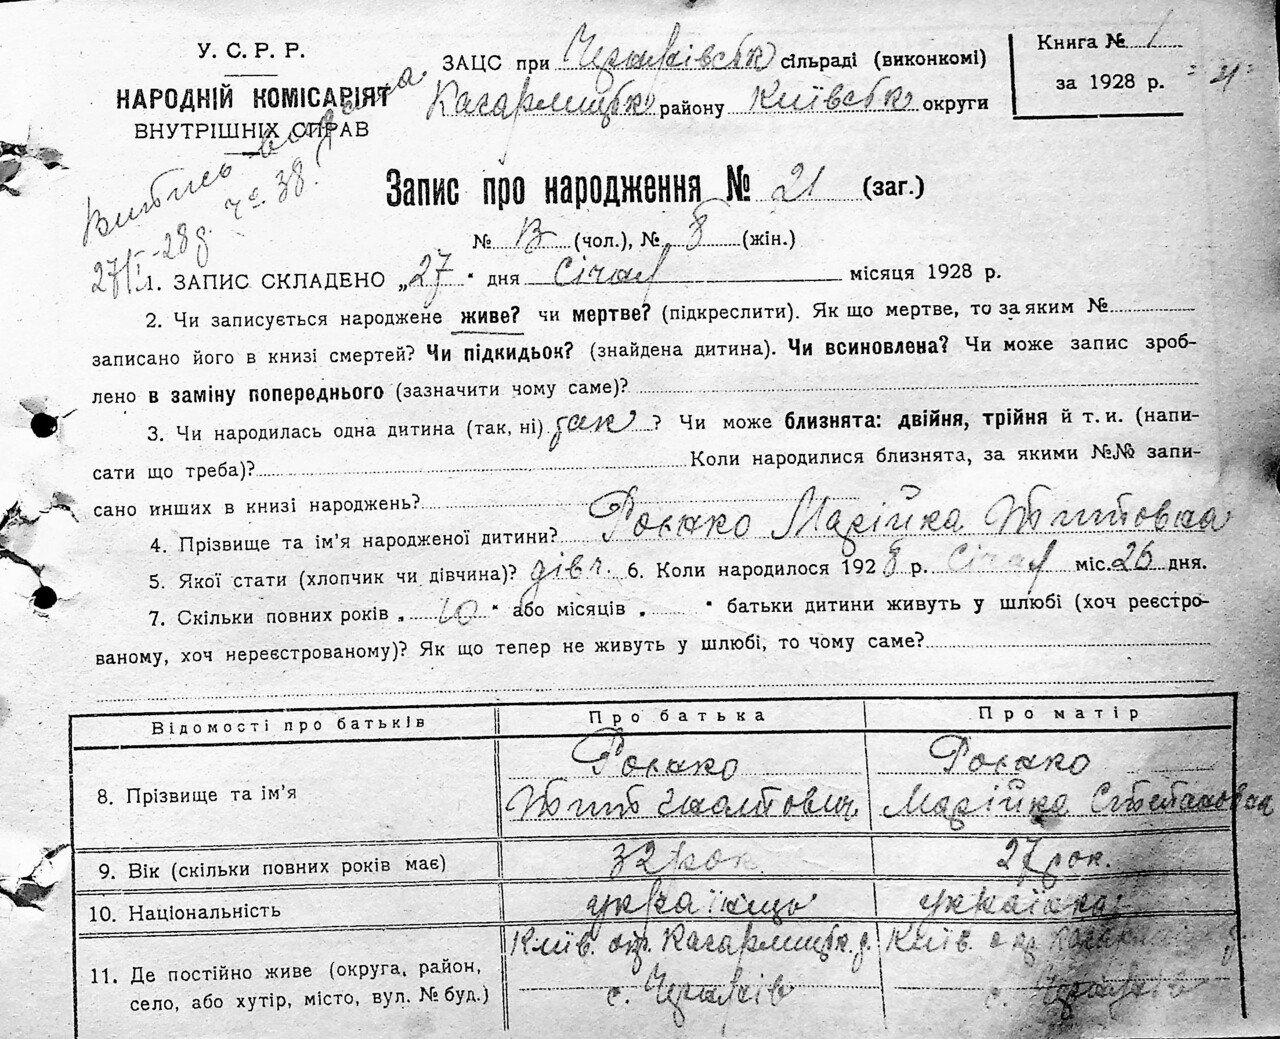 У. С. Р. Р.
НАРОДНІЙ КОМІСАРІЯТ
ВНУТРІШНІХ СПРАВ
ЗАЦС при Черняхівськ сільраді (виконкомі)
Кагарлицьк району Київськ округи
Книга № 1
за 1928 р.
21
Випись видана
27/I-28р. ч. 38.
Запис про народження № 21 (заг.)
№ 13 (чол.), № 8 (жін.)
1. ЗАПИС СКЛАДЕНО „27" дня Січня місяця 1928 р.
2. Чи записується народжене живе? чи мертве? (підкреслити). Як що мертве, то за яким №
записано його в книзі смертей? Чи підкидьок? (знайдена дитина). Чи всиновлена? Чи може запис зроб-
лено в заміну попереднього (зазначити чому саме)?
3. Чи народилась одна дитина (так, ні) так ? Чи може близнята: двійня, трійня й т. и. (напи-
сати що треба)? Коли народилися близнята, за якими №№ запи-
сано инших в книзі народжень?
4. Прізвище та ім'я народженої дитини? Марійка Титовна
5. Якої стати (хлопчик чи дівчина)? дівч. 6. Коли народилося 1928 р. Січня міс. 26 дня.
7. Скільки повних років „ 10 " або місяців „ " батьки дитини живуть у шлюбі (хоч реєстро-
ваному, хоч нереєстрованому)? Як що тепер не живуть у шлюбі, то чому саме?
Відомості про батьків Про батька Про матір
8. Прізвище та ім'я
Тит Марійка Степановна
9. Вік (скільки повних років має) 32 рок 27 рок.
10. Національність українець українка
11. Де постійно живе (округа, район,
село, або хутір, місто, вул. № буд.)
Київ. окр. Кагарлицьк. р. Київ. окр Кагарлицьк р.
с. Черняхів с. Черняхів